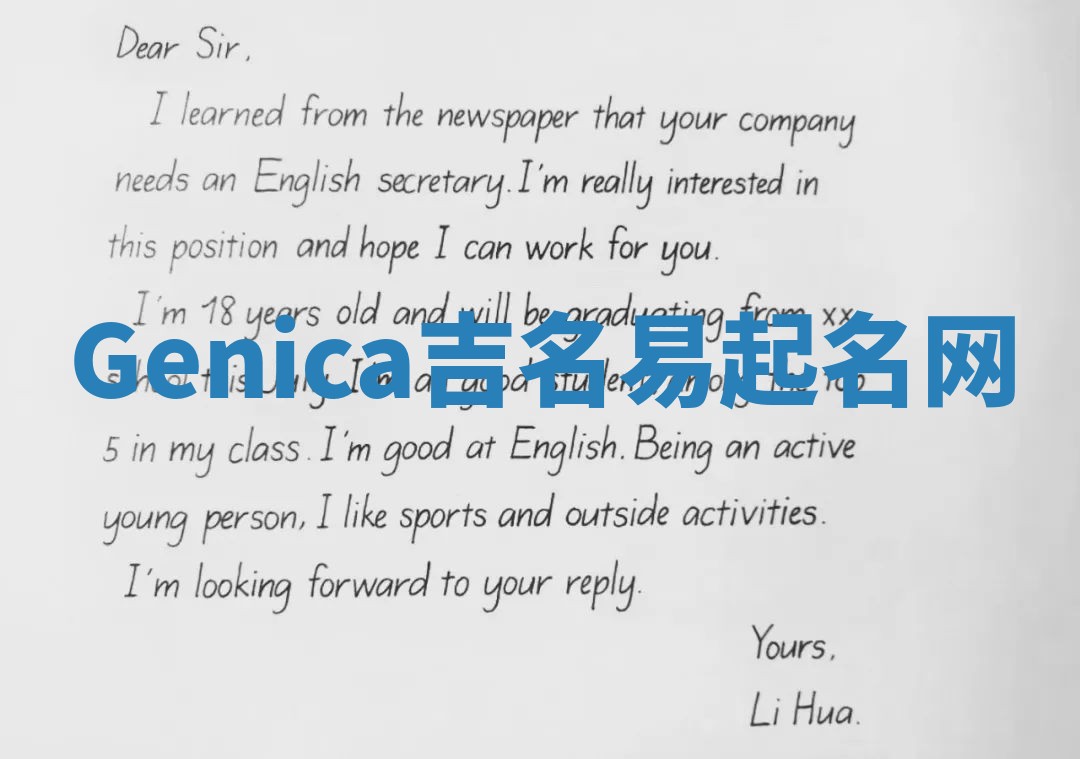 Dear Sir,
I learned from the newspaper that your company
needs an English secretary. I'm really interested in
this position and hope I can work for you.
I'm 18 years old and will be graduating from xx
Genica吉名易起名网
school this July. I'm a good student among the top
5 in my class. I'm good at English. Being an active
young person, I like sports and outside activities.
I'm looking forward to your reply.
Yours,
Li Hua.